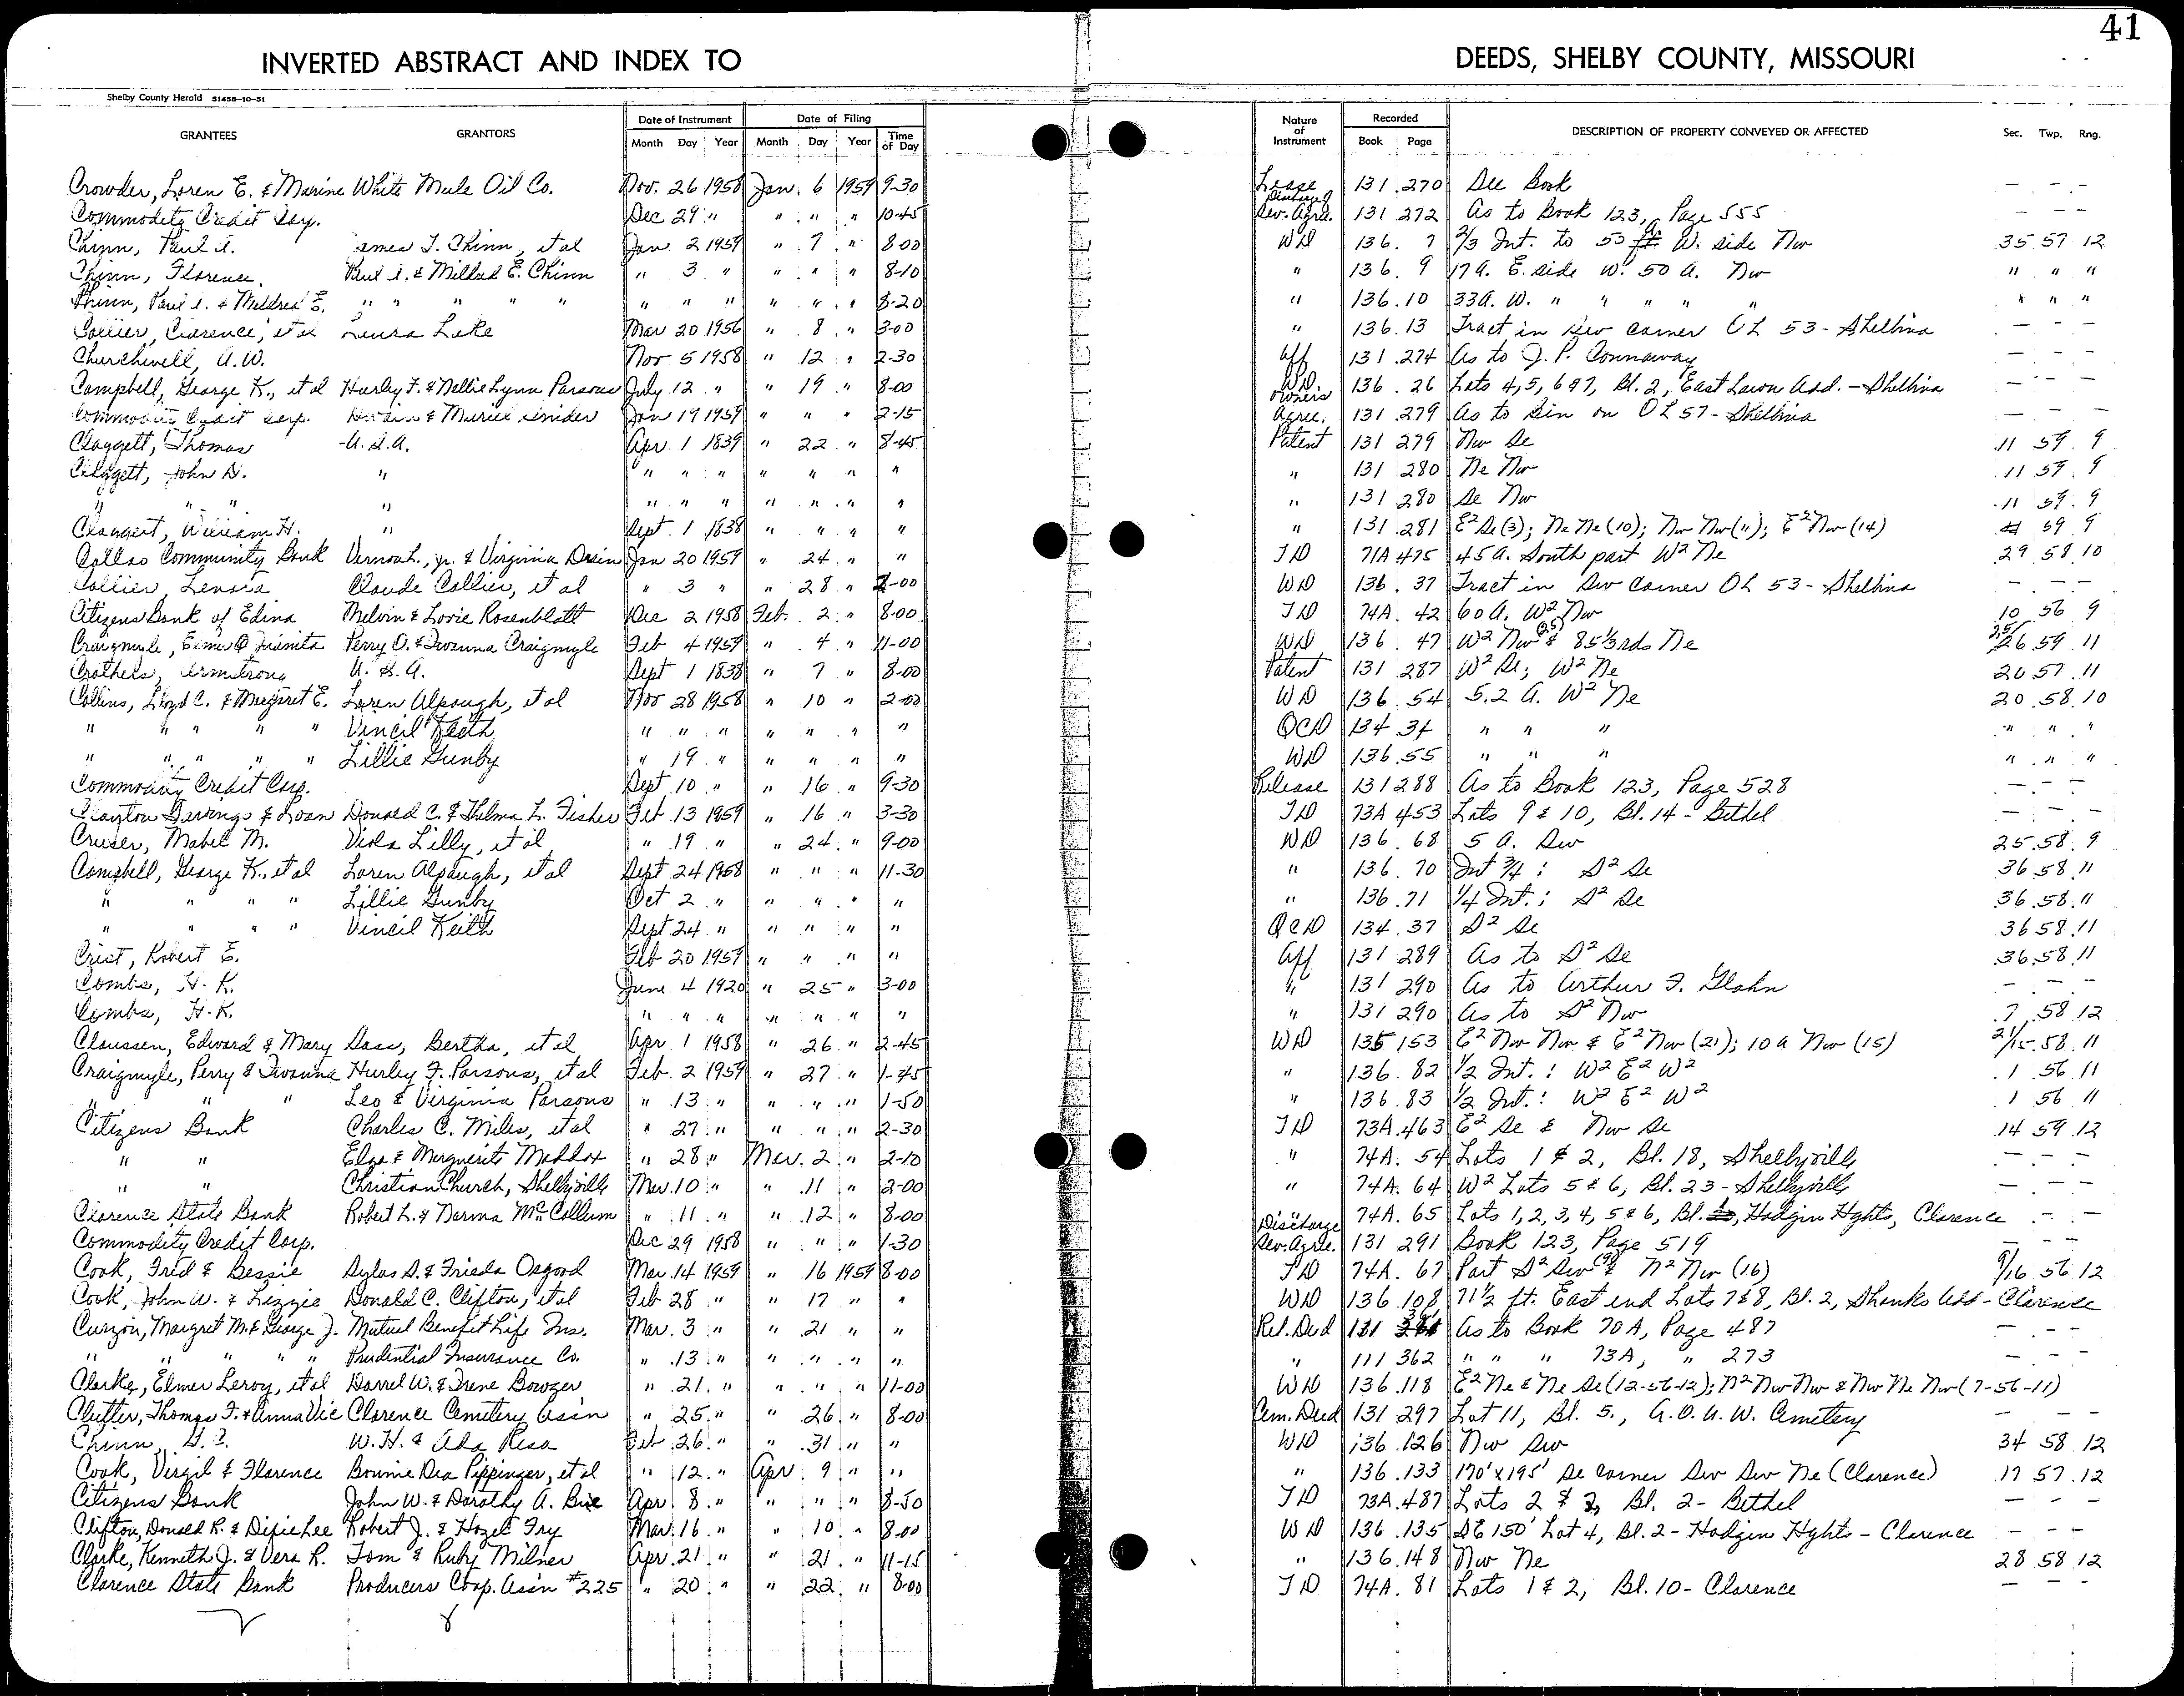 41
INVERTED ABSTRACT AND INDEX TO DEEDS, SHELBY COUNTY, MISSOURI
Shelby County Herald 51458-10-51
GRANTEES GRANTORS Date of Instrument Month Day Year Date of Filing Month Day Year Time of Day Nature of Instrument Recorded Book Page DESCRIPTION OF PROPERTY CONVEYED OR AFFECTED Sec. Twp. Rng.
Crowder, Loren E. & Maxine White Mule Oil Co. Nov. 26 1958 Jan. 6 1959 9-30 Lease 131 270 See Book — - -
Commodity Credit Corp. Dec 29 " " " " 10-45 Discharge Sev. Agre. 131 272 As to Book 123, Page 555 — —
Chinn, Paul A. James T. Chinn, et al Jan. 2 1959 " 7 " 8-00 WD 136 7 2/3 Int. to 50 A. W. side Nw 35 57 12
Chinn, Florence Paul A. & Mildred E. Chinn " 3 " " " " 8-10 " 136 9 17 A. E. side W. 50 A. Nw " " "
Chinn, Paul A. & Mildred E. " " " " " " " " " " 8-20 " 136 10 33 A. W. " " " " " " " "
Collier, Clarence, et al Laura Lake Mar 20 1956 " 8 " 3-00 " 136 13 Tract in Sw corner OL 53 - Shelbina — - -
Churchwell, A. W. Nov 5 1958 " 12 " 2-30 Aff 131 274 As to J. P. Connaway — - -
Campbell, George K., et al Hurley F. & Nellie Lynn Parsons July 12 " " 19 " 8-00 WD. 136 26 Lots 4, 5, 6 & 7, Bl. 2, East Lawn Add. - Shelbina — - -
Commodity Credit Corp. & Muriel Snider Jan 19 1959 " " " 2-15 Owners Agree. 131 279 As to Bin on OL 57 - Shelbina — — —
Claggett, Thomas U.S.A. Apr. 1 1839 " 22 " 8-45 Patent 131 279 Nw Se 11 59 9
Claggett, John D. " " " " " " " " " 131 280 Ne Nw 11 59 9
" " " " " " " " " " " " 131 280 Se Nw 11 59 9
Claggett, William H. " Sept. 1 1838 " " " " " 131 281 E² Se (3); Ne Ne (10); Nw Nw (11); E² Nw (14) 59 9
Community Bank Vernon L., Jr. & Virginia Drain Jan 20 1959 " 24 " " TD 71A 475 45 A. South part W² Ne 29 58 10
Collier, Lenora Claude Collier, et al " 3 " " 28 " -00 WD 136 37 Tract in Sw corner OL 53 - Shelbina — - -
Citizens Bank of Edina Melvin & Lovie Rosenblatt Dec. 2 1958 Feb. 2 " 8-00 TD 74A 42 60 A. W² Nw 10 56 9
Craigmyle, Elmer & Juanita Perry O. & Twanna Craigmyle Feb 4 1959 " 4 " 11-00 WD 136 47 W² Nw (25) & 85 1/3rds Ne 25/26 59 11
Crothers, Armstrong U.S.A. Sept. 1 1838 " 7 " 8-00 Patent 131 287 W² Se; W² Ne 20 57 11
Collins, Lloyd C. & Margaret E. Loren Alpaugh, et al Nov 28 1958 " 10 " 2-00 WD 136 54 5.2 A. W² Ne 20 58 10
" " " " " Vincil Keith " " " " " " " QCD 134 34 " " " " " "
" " " " " Lillie Gunby " 19 " " " " " WD 136 55 " " " " " "
Commodity Credit Corp. Sept 10 " " 16 " 9-30 Release 131 288 As to Book 123, Page 528 — - -
Clayton Savings & Loan Donald C. & Thelma L. Fisher Feb. 13 1959 " 16 " 3-30 TD 73A 453 Lots 9 & 10, Bl. 14 - Bethel — - -
Cruser, Mabel M. Viola Lilly, et al " 19 " " 24 " 9-00 WD 136 68 5 A. Sw 25 58 9
Campbell, George K., et al Loren Alpaugh, et al Sept 24 1958 " " " 11-30 " 136 70 Int 3/4: S² Se 36 58 11
" " " " Lillie Gunby Oct 2 " " " " " " 136 71 1/4 Int.: S² Se 36 58 11
" " " " Vincil Keith Sept 24 " " " " " QCD 134 37 S² Se 36 58 11
Crist, Robert E. Feb 20 1959 " " " " Aff 131 289 As to S² Se 36 58 11
Combs, H. K. June 4 1920 " 25 " 3-00 " 131 290 As to Arthur F. Glahn — - -
Combs, H. K. " " " " " " " " 131 290 As to S² Nw 7 58 12
Claussen, Edward & Mary Sass, Bertha, et al Apr. 1 1958 " 26 " 2-45 WD 135 153 E² Nw Nw & E² Nw (21); 10 a Nw (15) 21/15 58 11
Craigmyle, Perry & Twanna Hurley F. Parsons, et al Feb. 2 1959 " 27 " 1-45 " 136 82 1/2 Int.: W² E² W² 1 56 11
" " " Leo & Virginia Parsons " 13 " " " " 1-50 " 136 83 1/2 Int.: W² E² W² 1 56 11
Citizens Bank Charles C. Miles, et al " 27 " " " " 2-30 TD 73A 463 E² Se & Nw Se 14 59 12
" " Elza & Marguerite Maddox " 28 " Mar. 2 " 2-10 " 74A 54 Lots 1 & 2, Bl. 18, Shelbyville — - -
" " Christian Church, Shelbyville Mar. 10 " " 11 " 2-00 " 74A 64 W² Lots 5 & 6, Bl. 23 - Shelbyville — - -
Clarence State Bank Robert L. & Norma McCollum " 11 " " 12 " 8-00 " 74A 65 Lots 1, 2, 3, 4, 5 & 6, Bl. , Hodgin Hghts, Clarence — - -
Commodity Credit Corp. Dec 29 1958 " " " 1-30 Discharge Sev. Agree. 131 291 Book 123, Page 519 — —
Cook, Fred & Bessie Sylas S. & Frieda Osgood Mar. 14 1959 " 16 1959 8-00 TD 74A 67 Part S² Sw (9) & N² Nw (16) 9/16 56 12
Cook, John W. & Lizzie Donald C. Clifton, et al Feb 28 " " 17 " " WD 136 108 71 1/2 ft. East end Lots 7 & 8, Bl. 2, Shanks Add - Clarence
Curzon, Margret M. & George J. Mutual Benefit Life Ins. Mar. 3 " " 21 " " Rel. Deed 131 361 As to Book 70A, Page 487 — - -
" " " " " Prudential Insurance Co. " 13 " " " " " " 111 362 " " " 73A, " 273 — - -
Clarke, Elmer Leroy, et al Darrel W. & Irene Bowzer " 21 " " " " 11-00 WD 136 118 E² Ne & Ne Se (12-56-12); N² Nw Nw & Nw Ne Nw (7-56-11)
Clutter, Thomas F. & Anna Vie Clarence Cemetery Ass'n " 25 " " 26 " 8-00 Cem. Deed 131 297 Lot 11, Bl. 5., A.O.U.W. Cemetery — - -
Chinn, W. H. & Ada Resa Feb 26 " " 31 " " WD 136 126 Nw Sw 34 58 12
Cook, Virgil & Florence Bonnie Dea Pippinger, et al " 12 " Apr 9 " " " 136 133 170' x 195' Se corner Sw Sw Ne (Clarence) 17 57 12
Citizens Bank John W. & Dorothy A. Apr. 8 " " " " 8-50 TD 73A 487 Lots 2 & 3, Bl. 2 - Bethel — - -
Clifton, Donald R. & Dixie Lee Robert J. & Hazel Fry Mar. 16 " " 10 " 8-00 WD 136 135 SE 150' Lot 4, Bl. 2 - Hodgin Hghts - Clarence — - -
Clarke, Kenneth J. & Vera R. Tom & Ruby Milner Apr. 21 " " 21 " 11-15 " 136 148 Nw Ne 28 58 12
Clarence State Bank Producers Coop. Ass'n #225 " 20 " " 22 " 8-00 TD 74A 81 Lots 1 & 2, Bl. 10 - Clarence — —